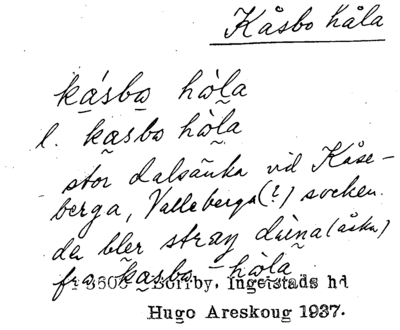 Kåsbo håla
ka̱´sbo̱ hȧ̀la̰
l. ka̱sbo̱ hȯ̀la̰
stor dalsänka vid Kåse-
berga, Valleberga (?) socken.
da bler stray (åska)
fra kasbo-hȯ̀la
Borrby, Ingelstads hd
Hugo Areskoug 1937.